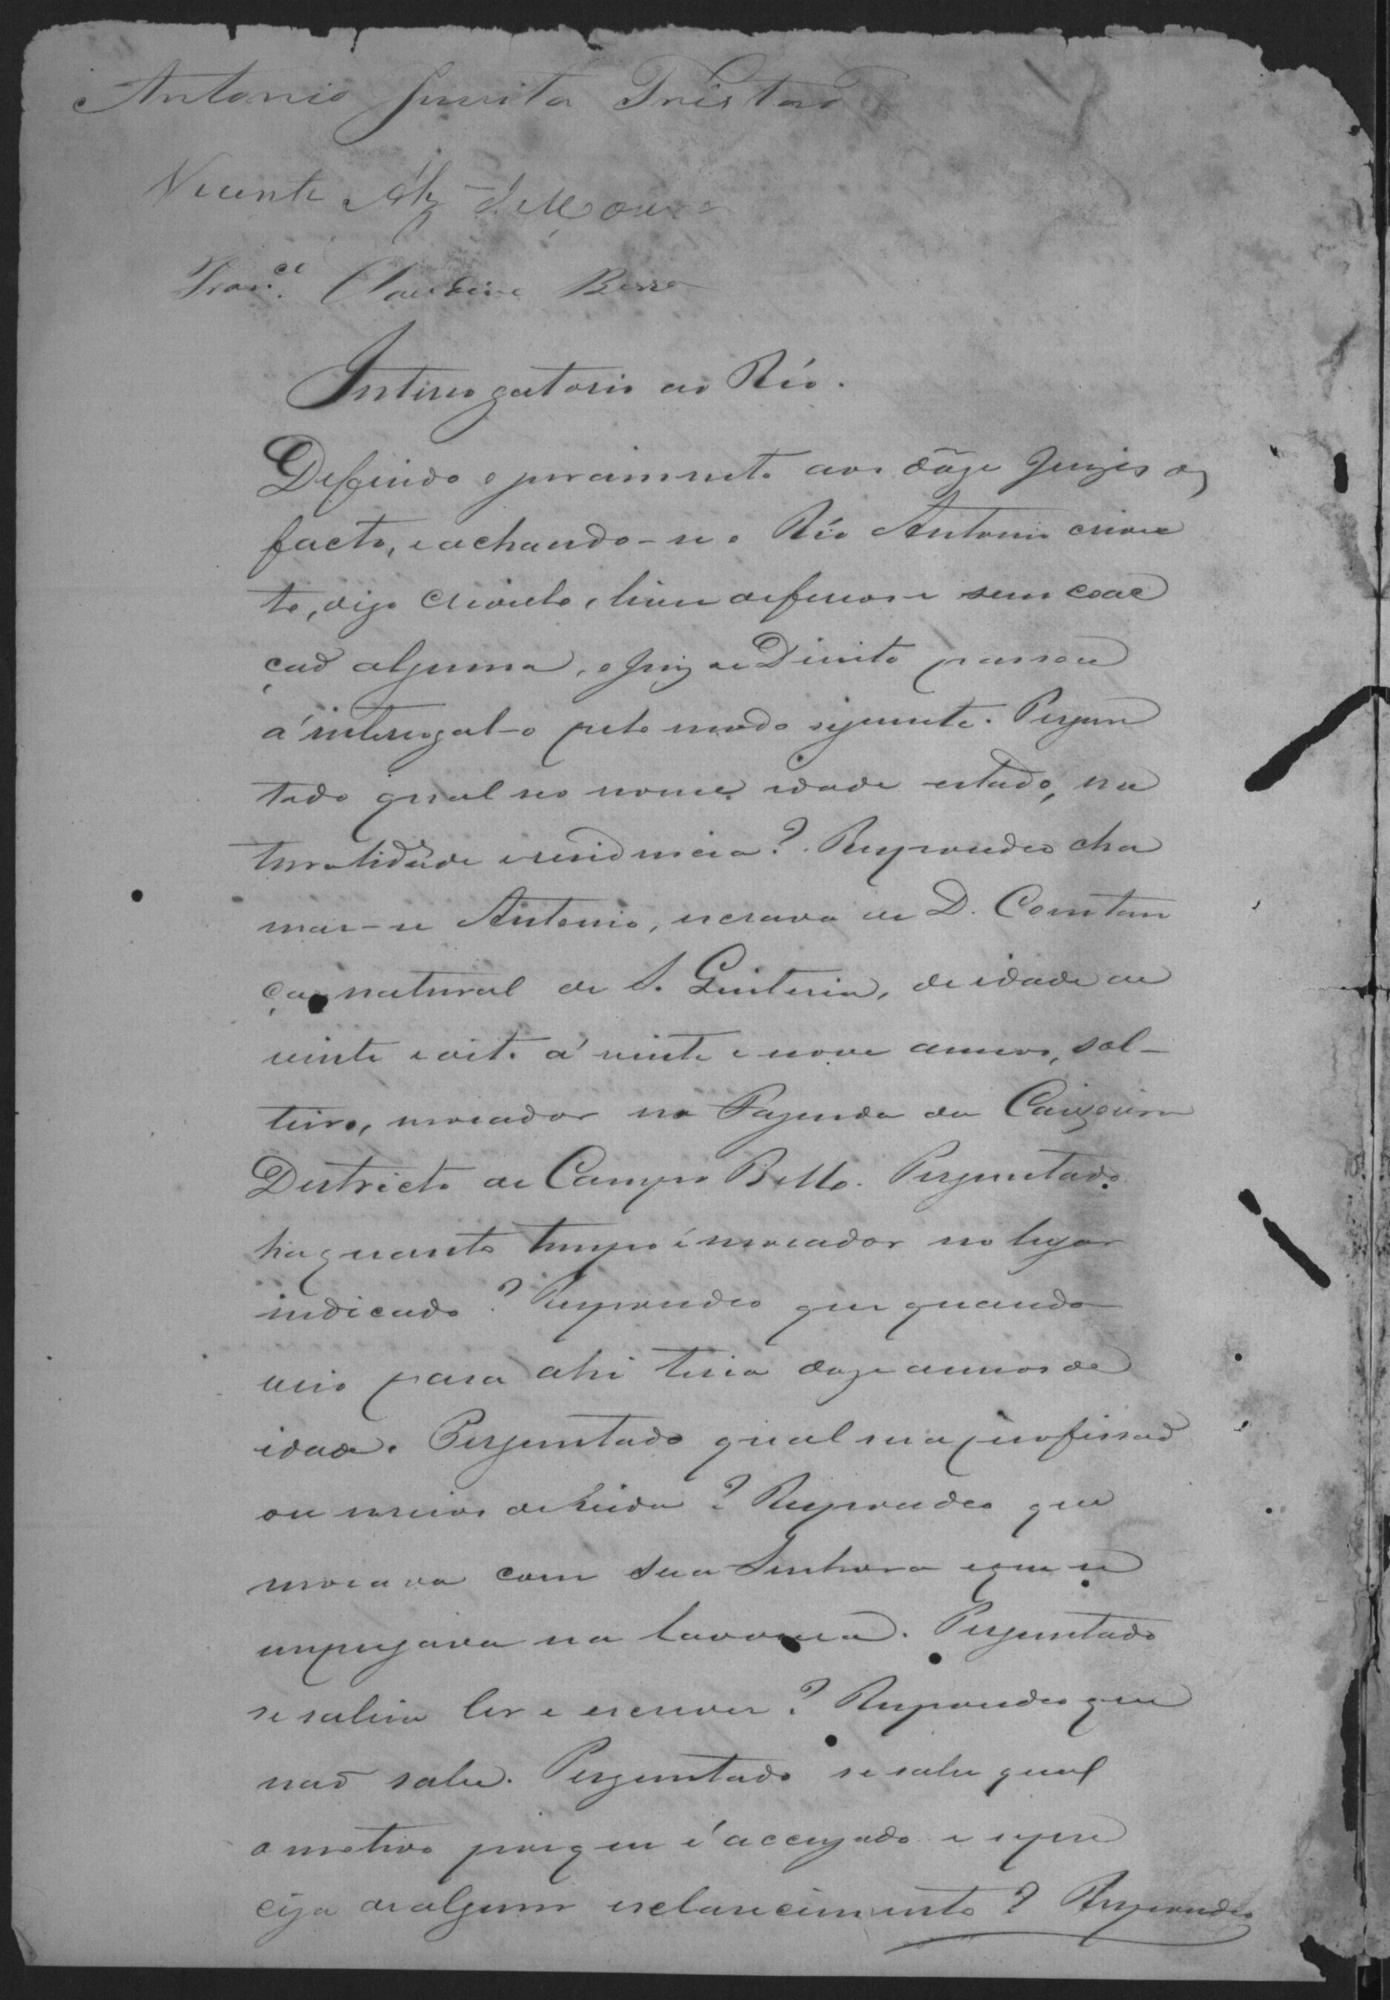 Antonio Tristão
Vicente Alz de Moura
Fran.co Claudino
Interrogatorio ao Réo.
Deferido o juramento aos dôze Juizes de
facto, e achando-se o Réo Antonio criou
to, digo Crioulo, livre de ferros e sem coac
ção alguma, o Juiz de Direito passou
á interrogal-o pelo modo seguinte. Pergun
tado qual seo nome, idade estado, na
turalidade e residencia? Respondeo cha
mar-se Antonio, escravo de D. Constan
ça, natural de S. Quiteria, de idade de
vinte e oito á vinte e nove annos, sol-
teiro, morador na Fazenda da
Districto de Campo Bello. Perguntado
ha quanto tempo é morador no lugar
indicado? Respondeo que quando
veio para ahi teria doze annos de
idade. Perguntado qual sua profissão
ou meios de vida? Respondeo que
morava com sua Senhora e que se
empregava na lavoura. Perguntado
se sabia ler e escrever? Respondeo que
não sabe. Perguntado se sabe qual
o motivo porque é accuzado e se pre
ciza de algum esclarecimento? Respondeo